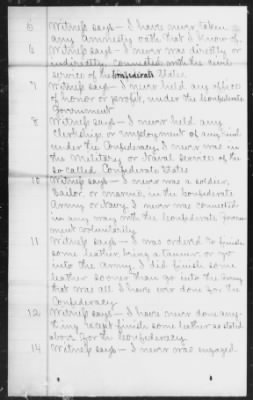 5 Witness says - I have never taken
any amnesty oath that I know of.
6 Witness says - I never was directly or
indirectly connected with the civil
service of the Confederate States
7 Witness says - I never held any office
of honor or profit, under the Confederate
Government
8 Witness says - I never held any
clerkship or employment of any kind
under the Confederacy. I never was in
the Military or Naval service of the
so called Confederate States
10 Witness says - I never was a soldier,
sailor or marine, in the Confederate
Army or Navy. I never was connected
in any way with the Confederate Government
voluntarily
11 Witness says - I was ordered to finish
some leather being a tanner or go
into the Army I did finish some
leather sooner than go into the Army
that was all I have ever done for the
Confederacy
12 Witness says - I have never done any-
thing except finish some leather as stated
above for the Confederacy
14 Witness says - I never was engaged